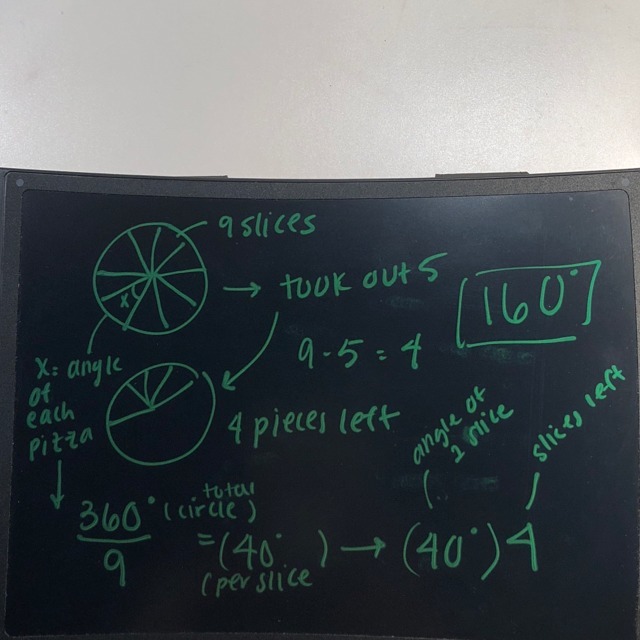 9 slices
→ took out 5
160°
9 - 5 = 4
x
x = angle
of
each
pizza
4 pieces left
angle of
1 slice
slices left
360° (total circle)
9
= (40° )
(per slice
→ (40°) 4